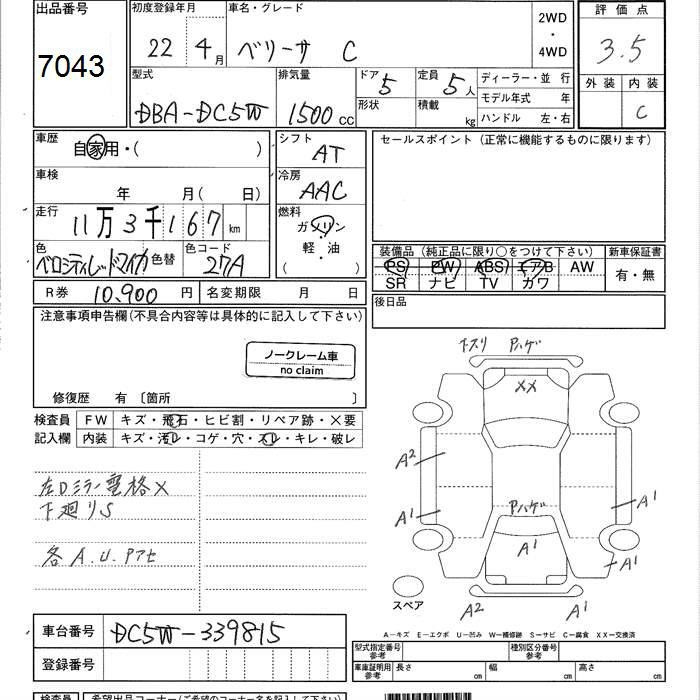 出品番号
7043
初度登録年月
22年 4月
車名・グレード
ベリーサ C
2WD
・
4WD
評価点
3.5
外装 内装
C
型式
DBA-DC5W
排気量
1500 CC
ドア 5
形状
定員 5人
積載 kg
ディーラー・並行
モデル年式 年
ハンドル 左・右
車歴
自家用・( )
車検
年 月( 日)
走行
11万3千167 km
色
ベロシティレッドマイカ 色替
色コード
27A
シフト
AT
冷房
AAC
燃料
ガソリン
・
軽・油
( )
セールスポイント (正常に機能するものに限ります)
装備品 (純正品に限り○をつけて下さい)
PS PW ABS エアB AW
SR ナビ TV カワ
新車保証書
有・無
R券 10,900 円 名変期限 月 日
後日品
注意事項申告欄(不具合内容等は具体的に記入して下さい)
ノークレーム車
no claim
修復歴 有 〔箇所 〕
検査員 FW キズ・飛石・ヒビ割・リペア跡・×要
記入欄 内装 キズ・汚レ・コゲ・穴・スレ・キレ・破レ
左Dミラー電格×
下廻りS
各A.U.Pアセ
下スリ Pハゲ
XX
A2
A1
Pハゲ
A1
A1
A1
A2
A1
スペア
A-キズ E-エクボ U-凹み W-補修跡 S-サビ C-腐食 XX-交換済
車台番号 DC5W-339815
登録番号
型式指定番号
参考
種別区分番号
参考
車庫証明用
参考
長さ cm 幅 cm 高さ cm
検査員 希望出品コーナー(ご希望のコーナー名を記入